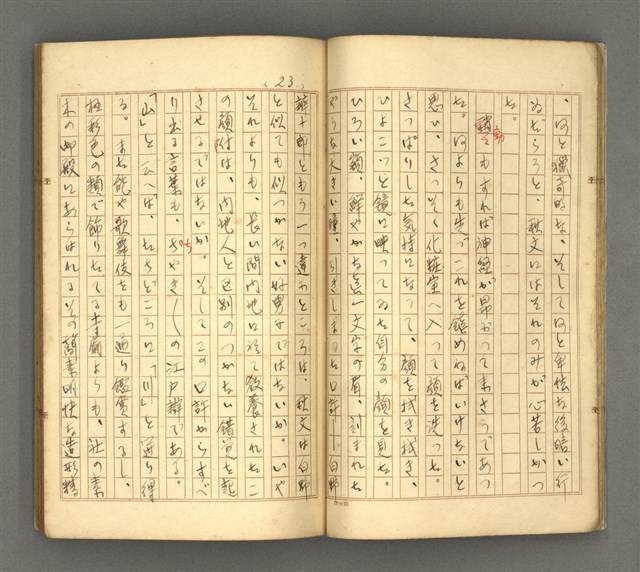 、何と獵奇的な、そして何と卑怯な後暗い行
ゐだらうと、秋文にはそれのみが心苦しかつ
た。
動ともすれば神経が昂がつて来さうであつ
た。何よりも先づこれを鎮めねばいけないと
思ひ、さつそく化粧室へ入つて顔を洗つた。
さつぱりした気持になつて、顔を拭き拭き、
ひよこつと鏡に映つてゐる自分の顔を見た。
ひろい額、鮮やかな眞一文字の眉、刻まれた
やうな大きい瞳、引きしまつた口許――白野
(23)
辨十郎ともう一つ違ふところは、秋文は白野
と似ても似つかない好男子ではないか。いや
それよりも、長い間内地に於て教養されたこ
の顔付は、内地人と区別のつかない錯覚を起
させるではないか。そしてこの口許からすべ
り出る言葉も、ちやき〱の江戸辯である。
「山」と云へば、たちどころに「川」と返り得
る。また能や歌舞伎をも一通り鑑賞するし、
極彩色の類で飾りたてる寺廟よりも、社の素
木の御殿にあらはれるその簡素明快な造形精